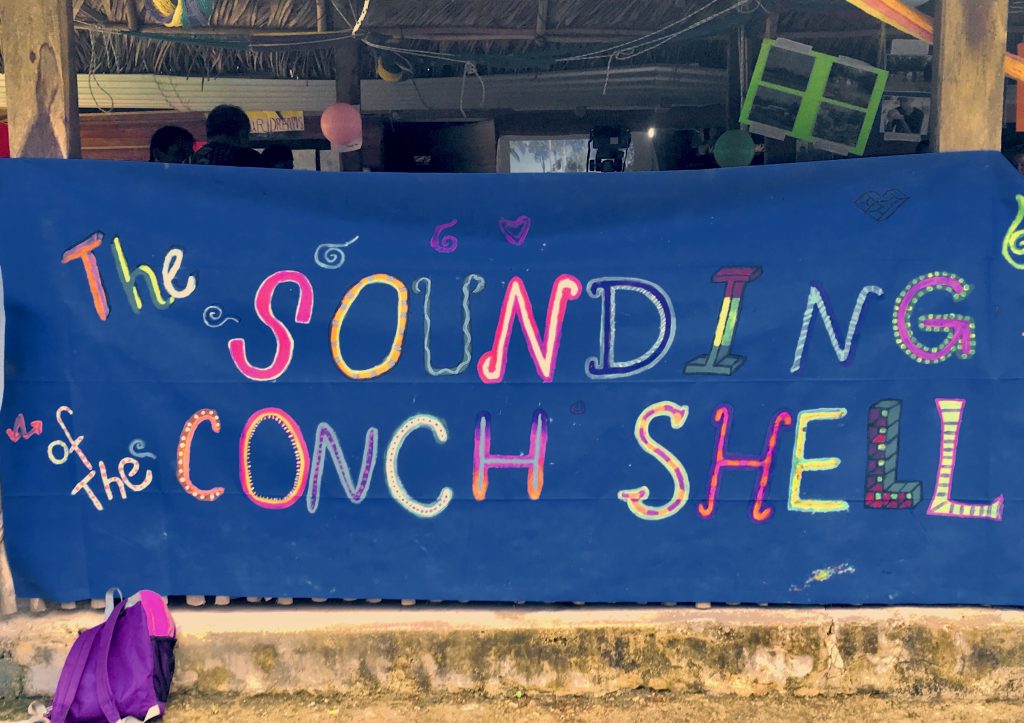 The SOUNDING
of The CONCH SHELL